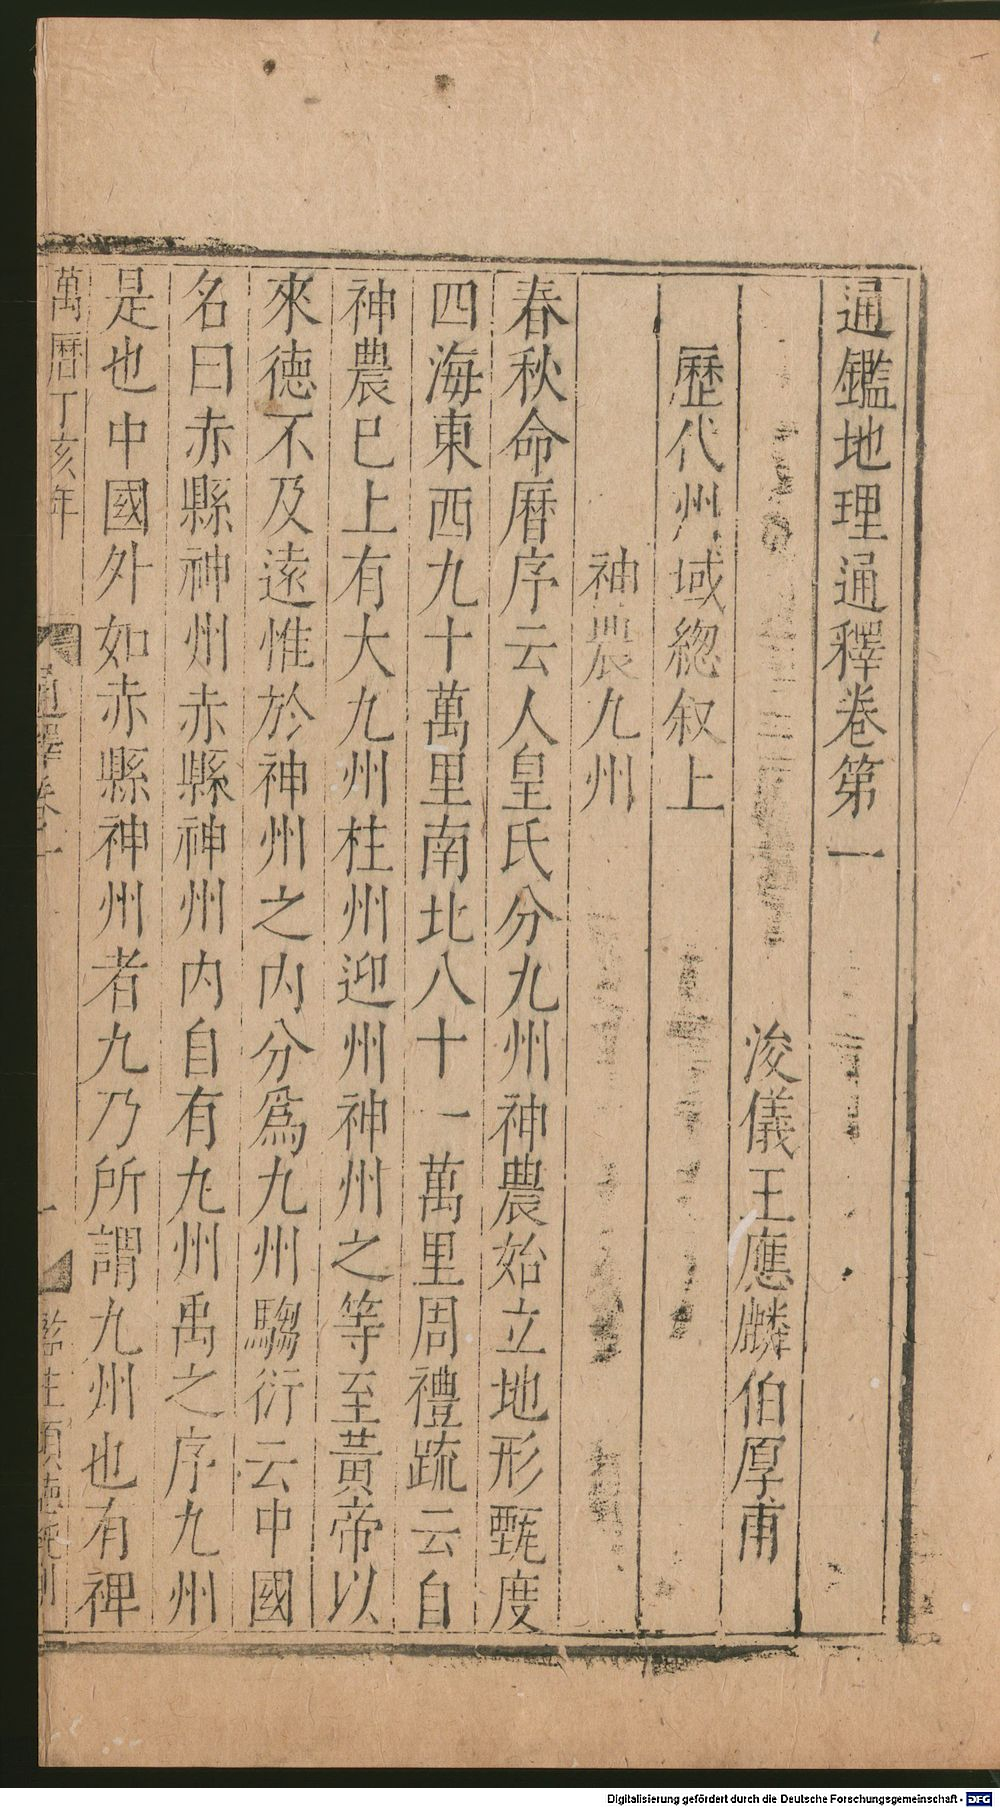 通鑑地理通釋卷第一
浚儀王應麟伯厚甫
歷代州域緫叙上
神農九州
春秋命曆序云人皇氏分九州神農始立地形甄度
四海東西九十萬里南北八十一萬里周禮疏云自
神農已上有大九州柱州迎州神州之等至黃帝以
來德不及遠惟於神州之内分爲九州騶衍云中國
名曰赤縣神州赤縣神州内自有九州禹之序九州
是也中國外如赤縣神州者九乃所謂九州也有裨
萬曆丁亥年
通釋卷一
一
監生項德
刊
Digitalisierung gefördert durch die Deutsche Forschungsgemeinschaft - DFG